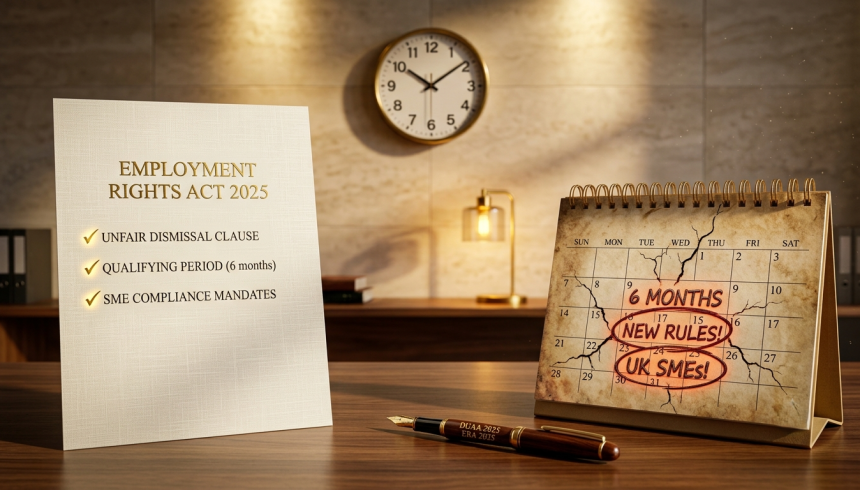 EMPLOYMENT
RIGHTS ACT 2025
UNFAIR DISMISSAL CLAUSE
QUALIFYING PERIOD (6 months)
SME COMPLIANCE MANDATES
12
1
2
3
4
5
6
7
8
9
10
11
SUN MON TUE WED THU FRI SAT
1 2 3
7 8 9 9 10
6 MONTHS
14 15 16 17 15 16 17
NEW RULES!
21 22 23 24 25 26 27
UK SMES!
28 29 30 31
DUAA 2025
ERA 2025